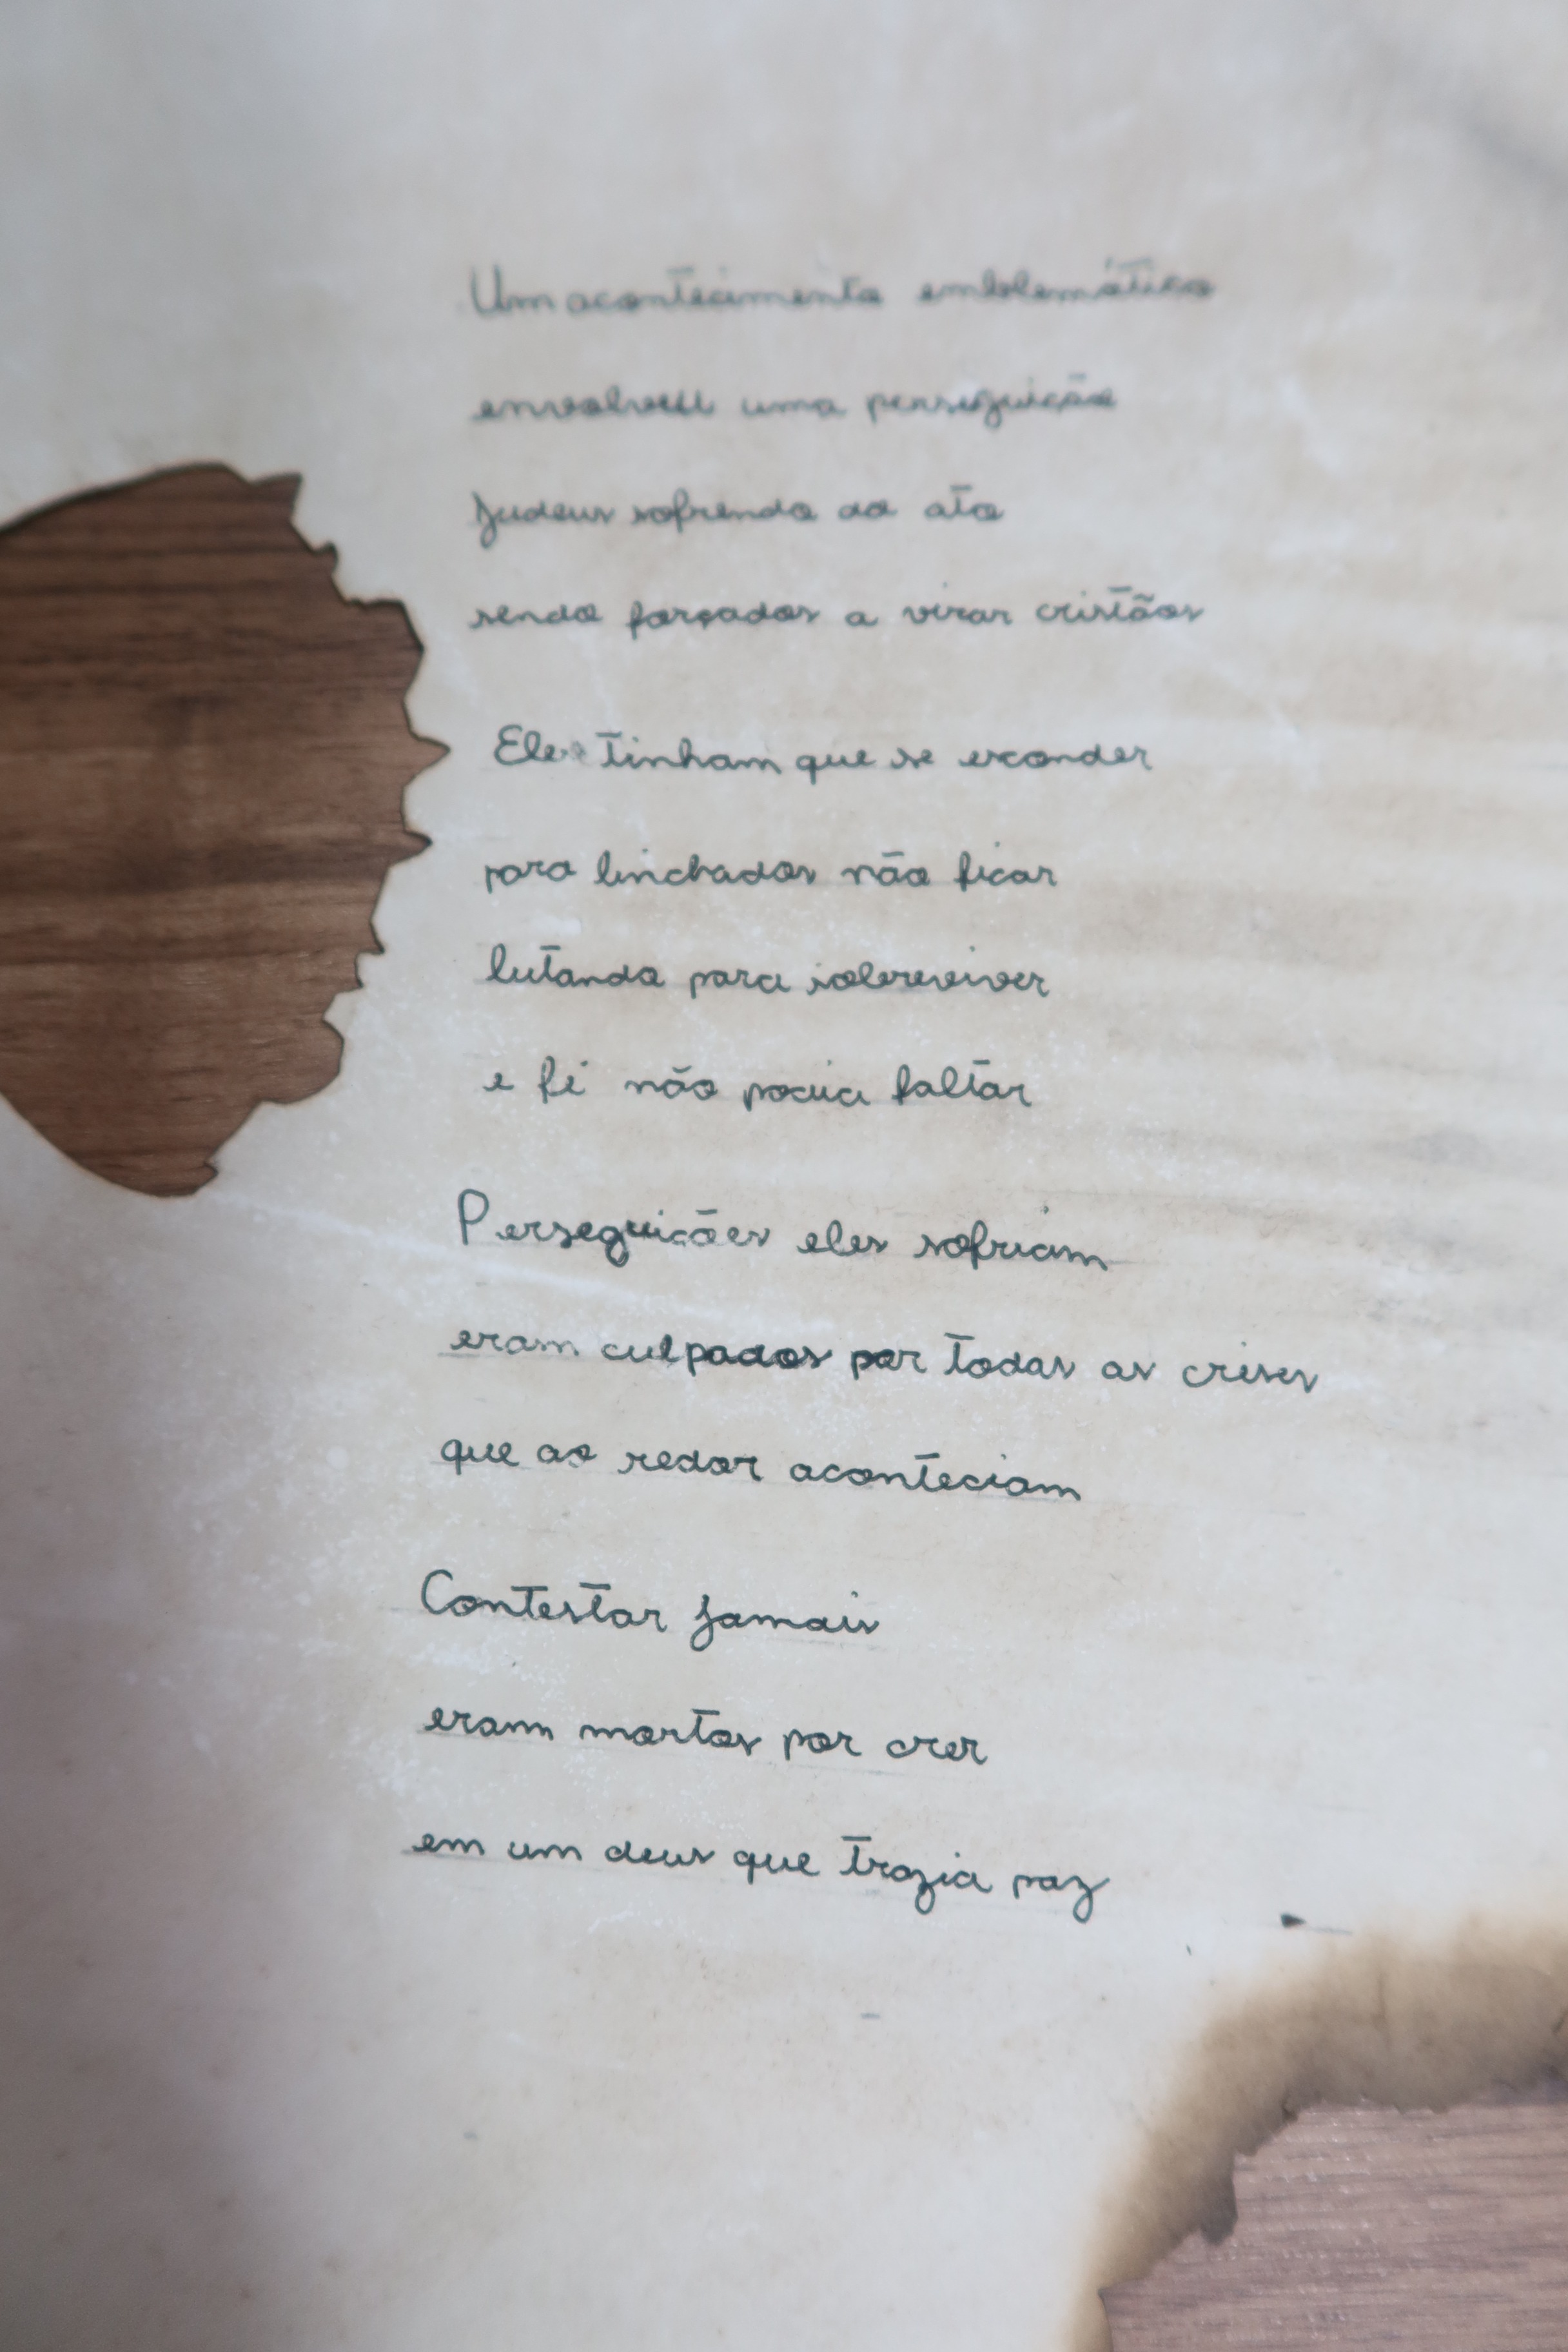 Um acontecimento emblemático
envolveu uma perseguição
Judeus sofrendo ao ato
sendo forçados a virar cristãos
Eles tinham que se esconder
para linchados não ficar
lutando para sobreviver
e fé não podia faltar
Perseguições eles sofriam
eram culpados por todas as crises
que ao redor aconteciam
Contestar jamais
eram mortos por crer
em um deus que trazia paz